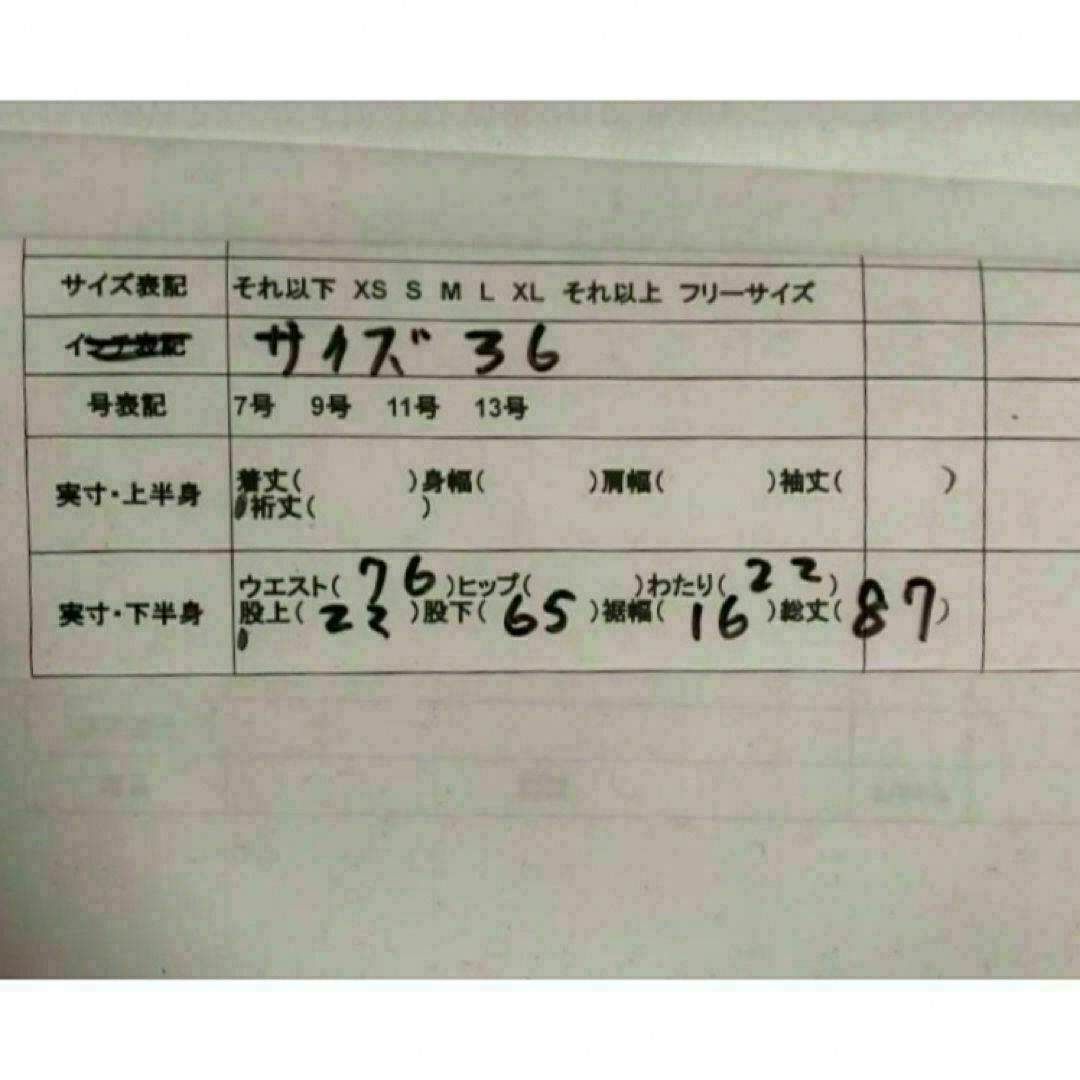 サイズ表記 それ以下 XS S M L XL それ以上 フリーサイズ
インチ表記 サイズ 36
号表記 7号 9号 11号 13号
実寸・上半身 着丈( )身幅( )肩幅( )袖丈( )
裄丈( )
実寸・下半身 ウエスト( 76 )ヒップ( )わたり( 22 )
股上( 22 )股下( 65 )裾幅( 16 )総丈( 87 )